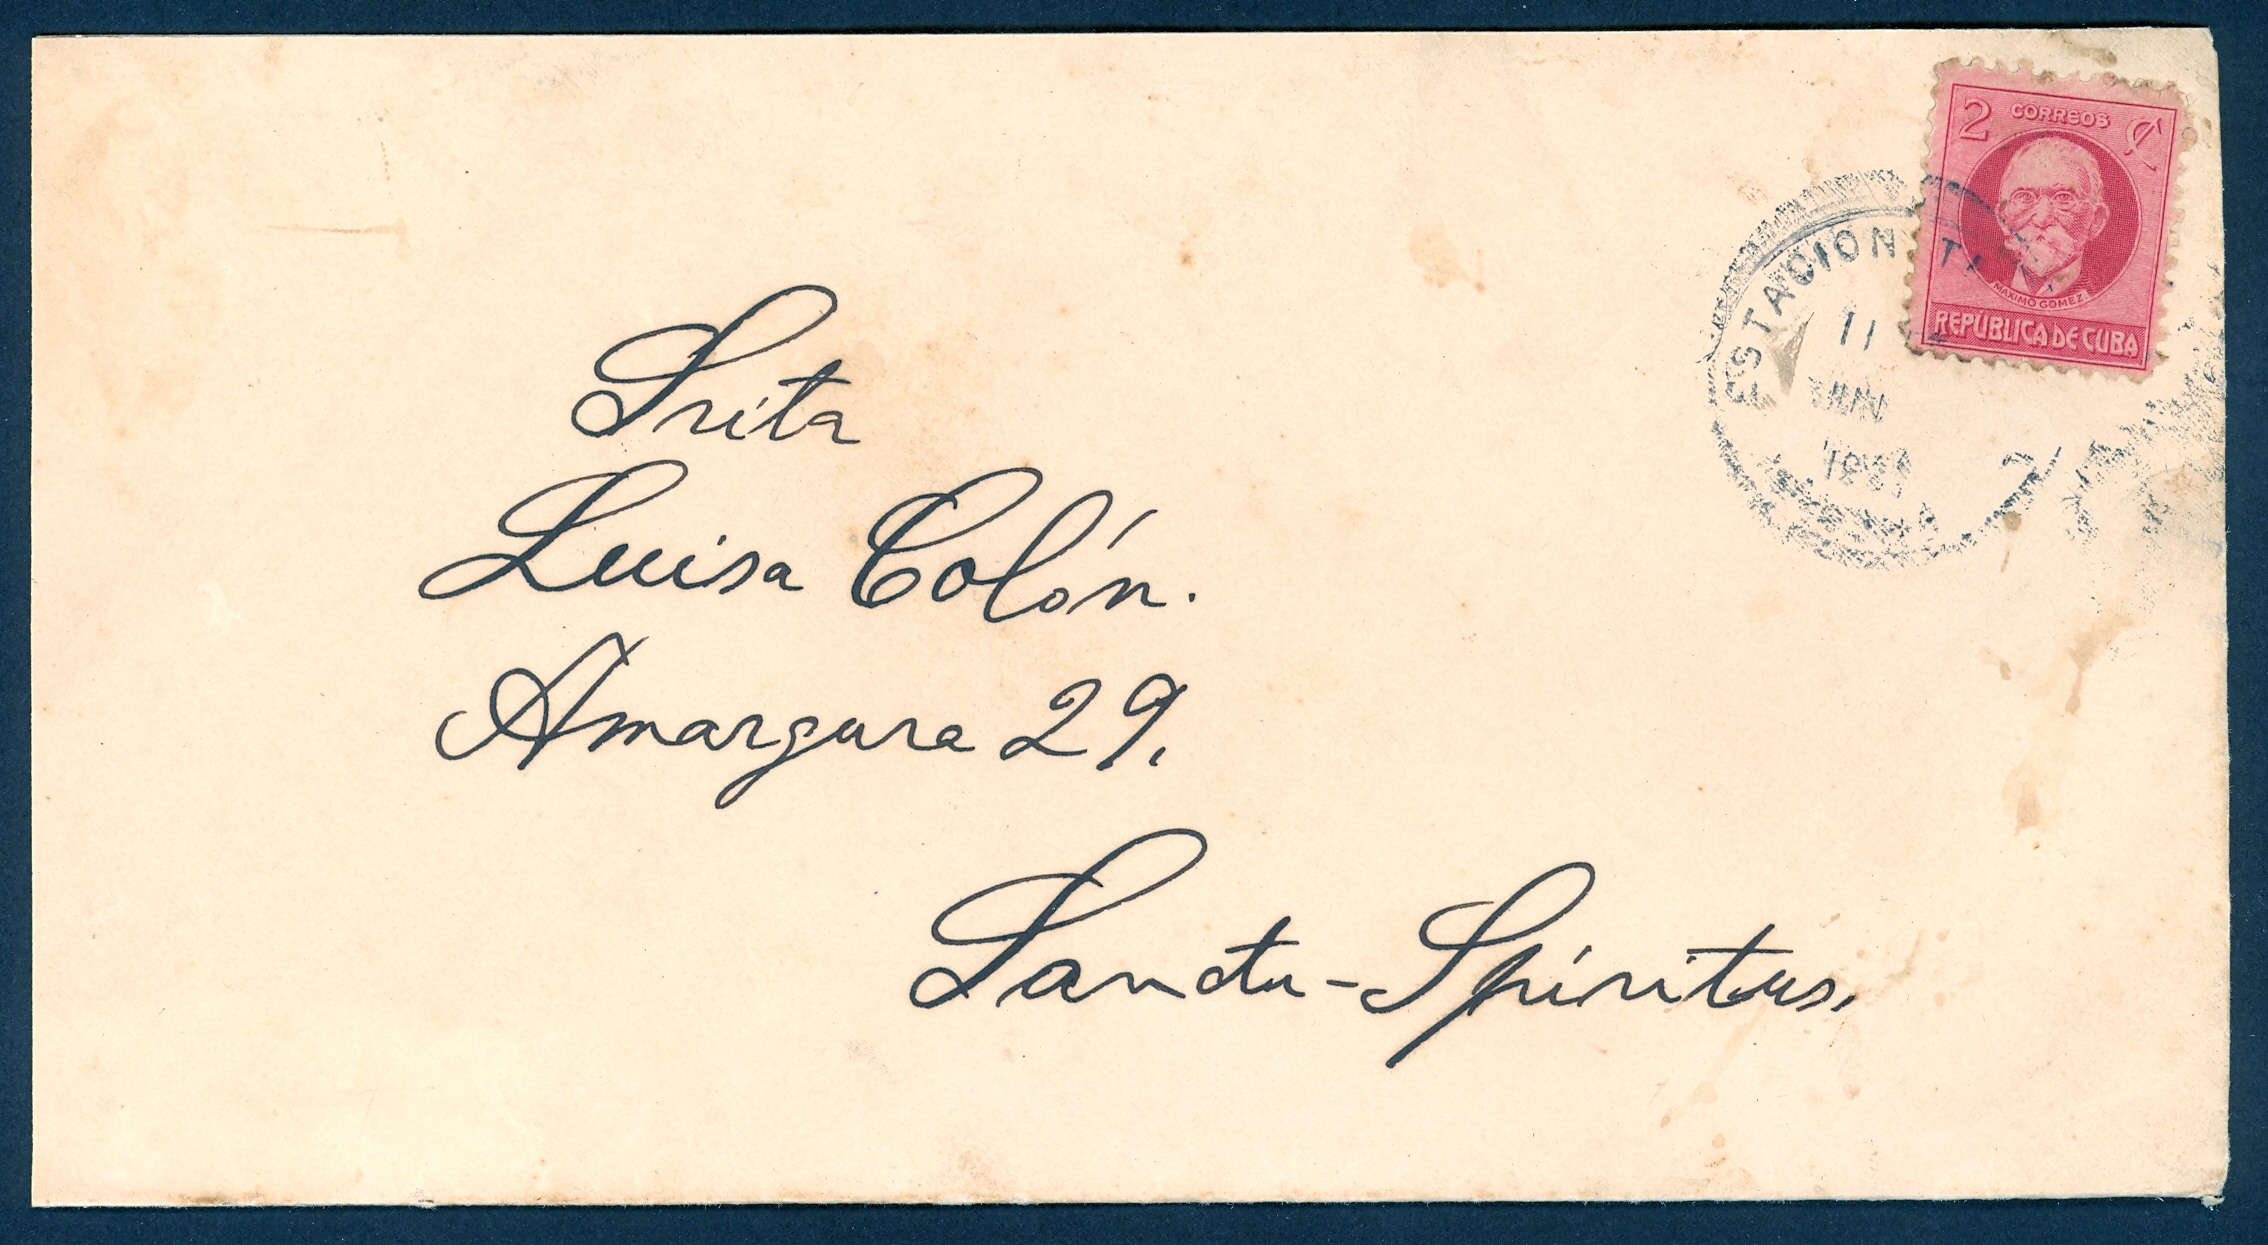 2 CORREOS ¢
MAXIMO GOMEZ.
REPUBLICA DE CUBA
ESTACION
11
JUN
Srita
Luisa Colón.
Amargura 29.
Sanctu-Spíritus.